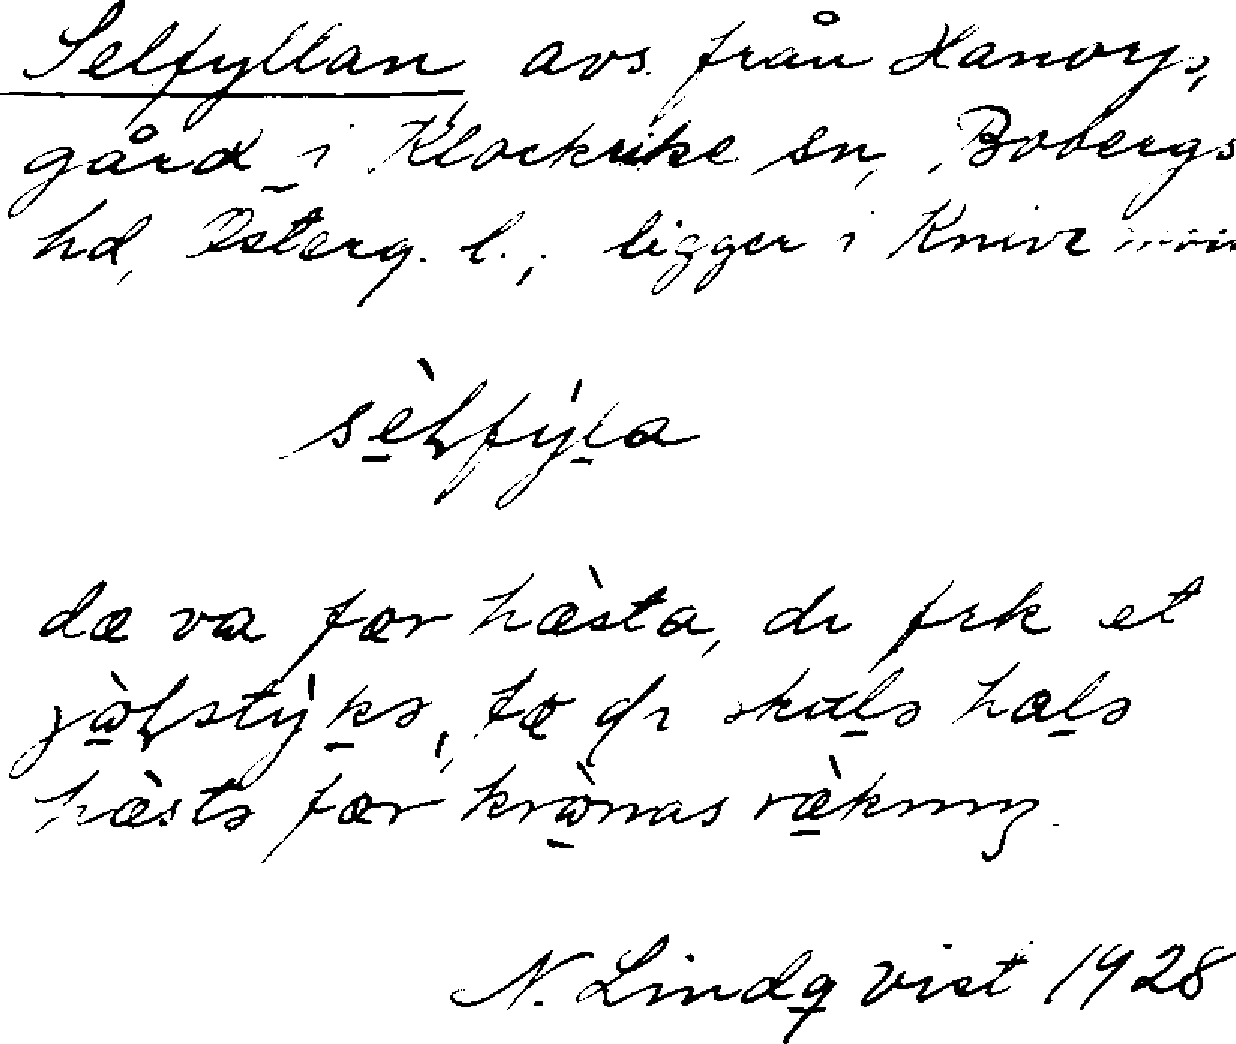 Selfyllan, avs. från Hanorps,
gård i Klockrike sn, Bobergs
hd, Österg. l.; ligger i Knive
sèɭfýla
dæ va fær hæ̀sta, dɪ fɪk et
jɷ̀ɭstỳkə, fæ dɪ skulə hælə
hæ̀stə fær krɷ̀nas ræ̀knɪŋ.
N. Lindqvist 1928